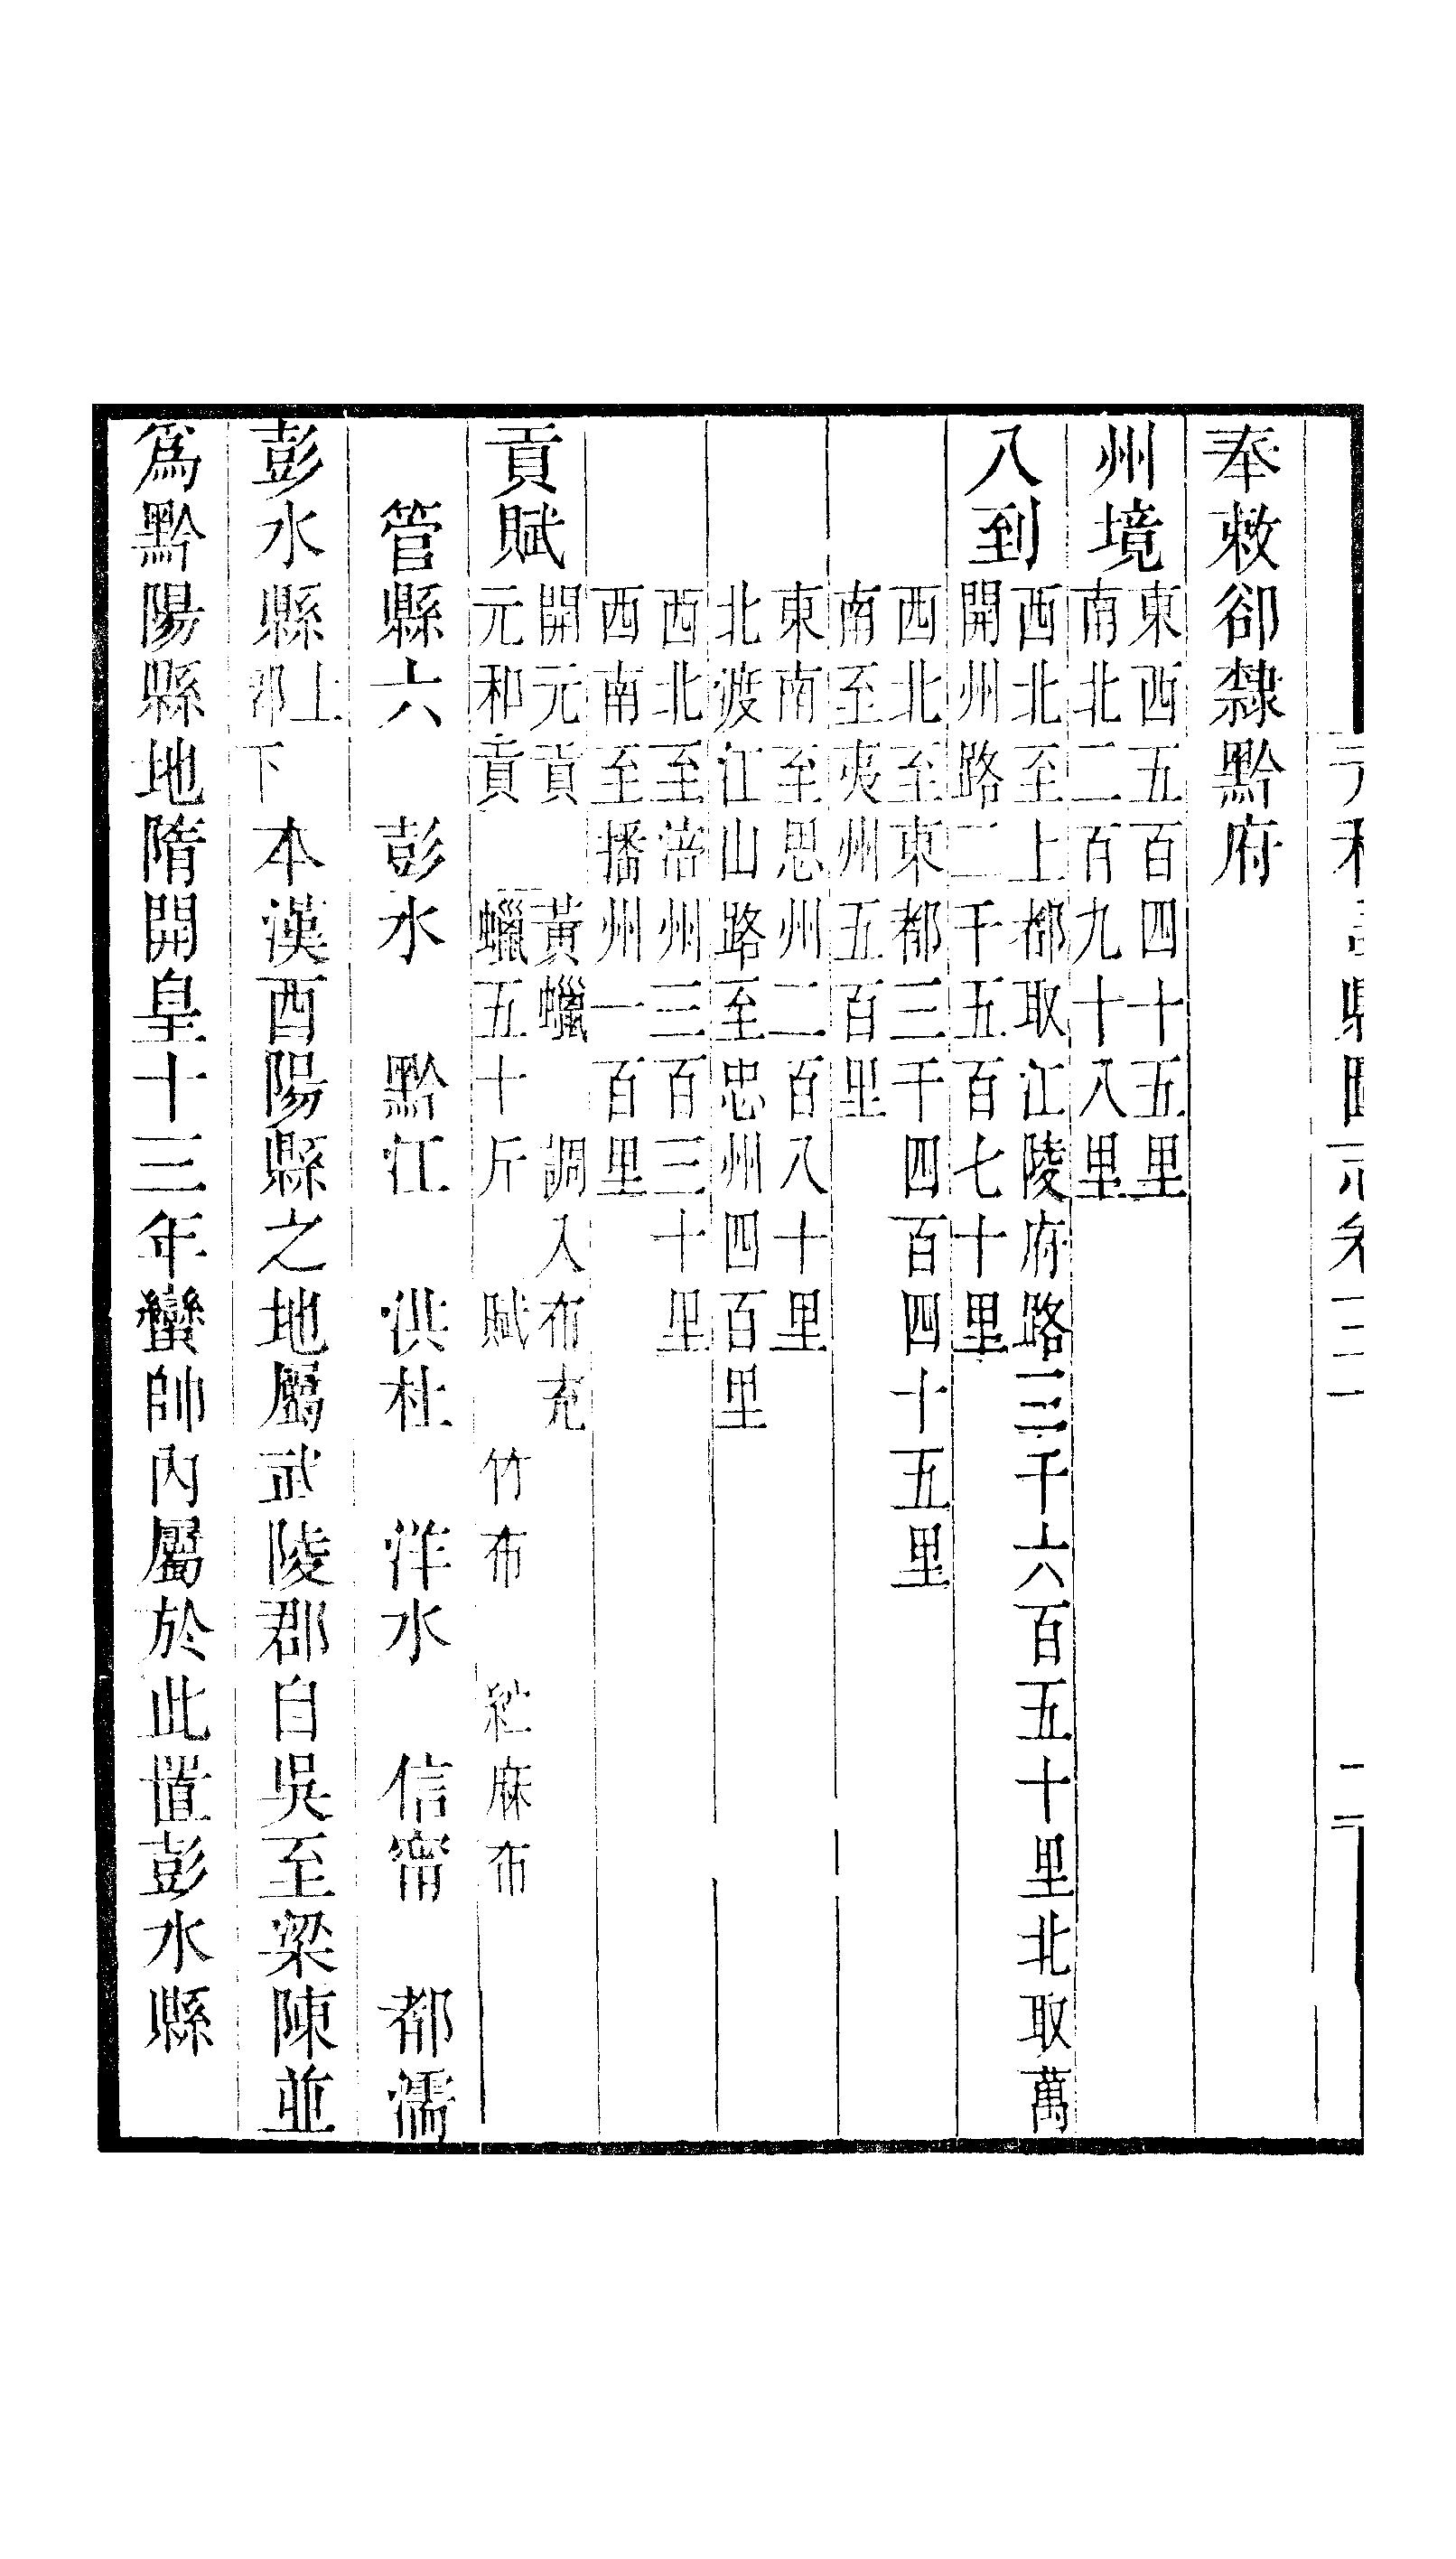 奉敕卻隸黔府
州境
東西五百四十五里
南北二百九十八里
八到
西北至上都取江陵府路三千六百五十里北取萬
開州路二千五百七十里
西北至東都三千四百四十五里
南至夷州五百里
東南至思州二百八十里
北渡江山路至忠州四百里
西北至涪州三百三十里
西南至播州一百里
貢賦
開元貢 黃蠟 調入布充
元和貢 蠟五十斤 賦 竹布 紵麻布
管縣六 彭水 黔江 洪杜 洋水 信甯 都濡
彭水縣
上
郡下
本漢酉陽縣之地屬武陵郡自吳至梁陳並
爲黔陽縣地隋開皇十三年蠻帥內屬於此置彭水縣